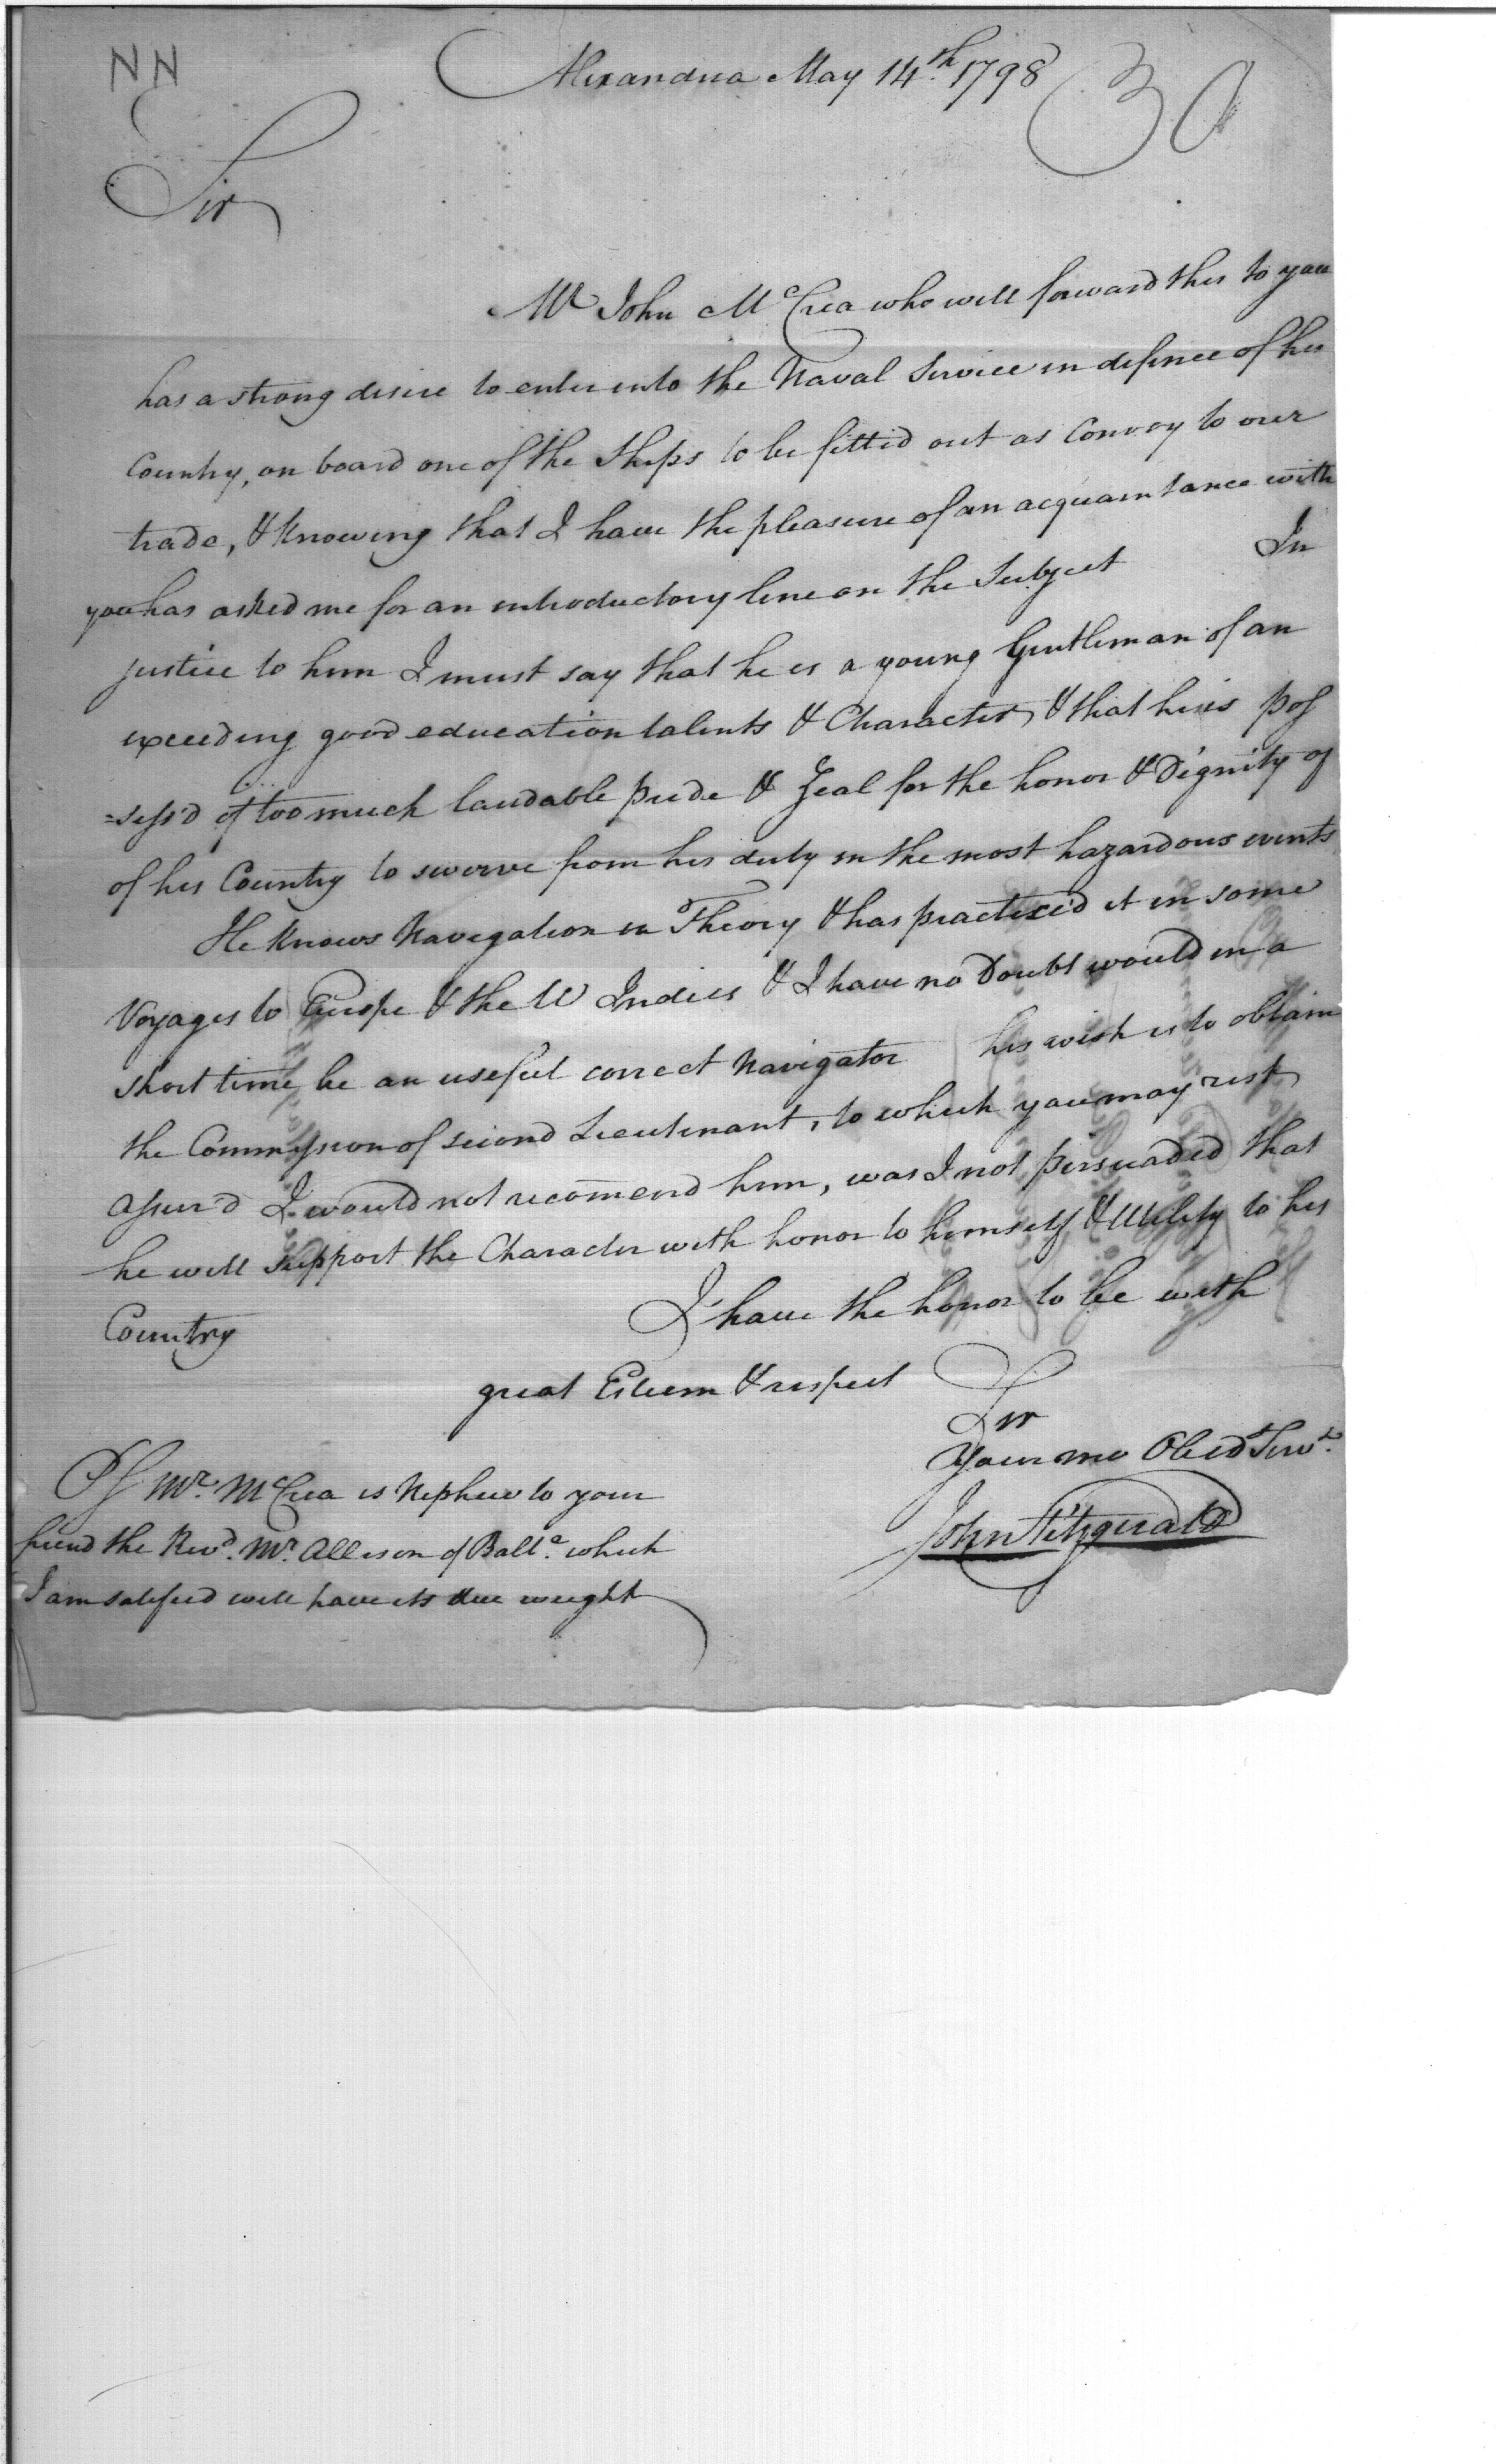 NN
Alexandria May 14th. 1798
30
Sir
Mr John McCrea who will forward this to you
has a strong desire to enter into the Naval Service in defence of his
Country, on board one of the Ships to be fitted out as Convoy to our
trade, & knowing that I have the pleasure of an acquaintance with
you has asked me for an introductory line on the Subject In
justice to him I must say that he is a young Gentleman of an
exceeding good education talents & Character, & that he is pos
=sess'd of too much laudable pride & Zeal for the honor & Dignity of
of his Country to swerve from his duty in the most hazardous events
He knows Navigation in Theory & has practice'd it in some
Voyages to Europe & the W Indies & I have no Doubt would in a
short time be an useful correct Navigator his wish is to obtain
the Commission of second Lieutenant, to which you may rest
assur'd I would not recomend him, was I not persuaded that
he will support the Character with honor to himself & Utility to his
Country I have the honor to be with
great Esteem & respect
Sir
Your mo Obedt Servt.
John Fitzgerald
PS Mr. McCrea is Nephew to your
friend the Revd. Mr. Allison of Balte. which
I am satisfied will have its due weight